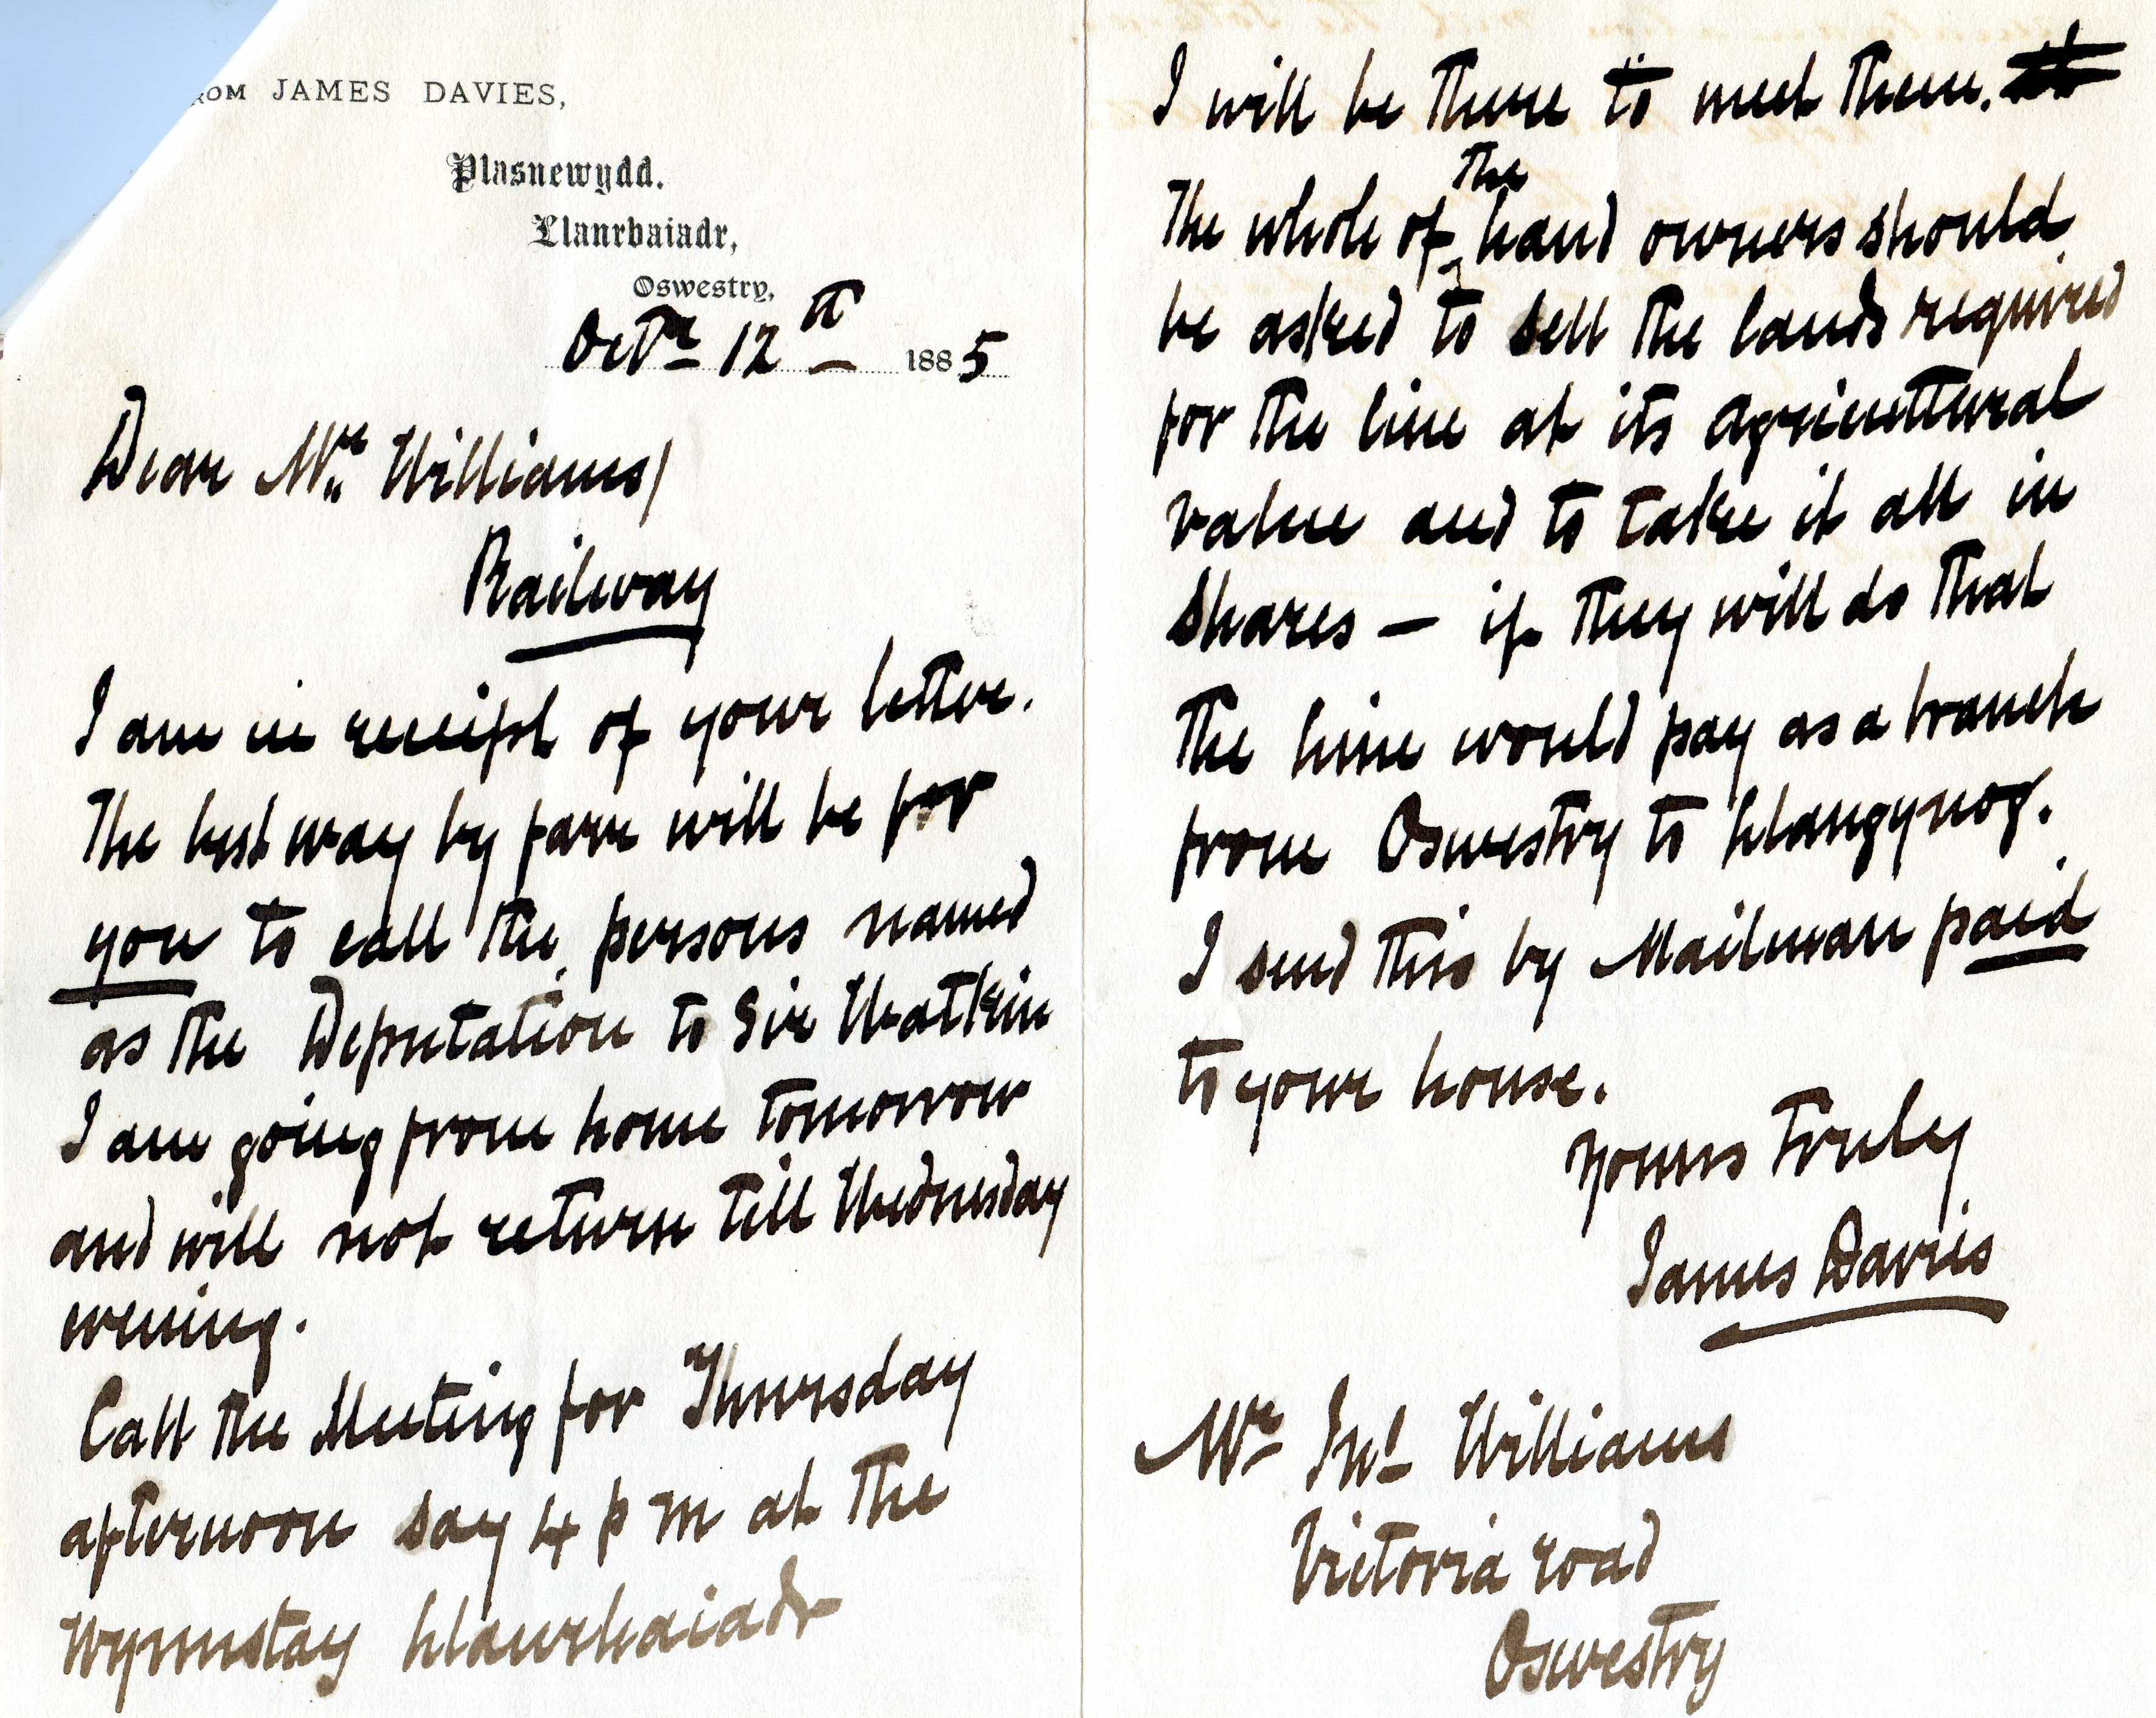 ROM JAMES DAVIES,
Plasnewydd.
Llanrhaiadr,
Oswestry,
Octr 12th 1885
Dear Mr. Williams,
Railway
I am in receipt of your letter.
The best way by farr will be for
you to call the persons named
as the Deputation to Sir Watkin
I am going from home tomorrow
and will not return till Wednesday
evening.
Call the Meeting for Thursday
afternoon say 4 p m at the
Wynnstay Llanrhaiadr
I will be there to meet them.
The whole of the Land owners should
be asked to sell the lands required
for the line at its agricultural
value and to take it all in
Shares — if they will do that
The line would pay as a branch
from Oswestry to Llangynog.
I send this by Mailman paid
to your house.
Yours Truly
James Davies
Mr Jno Williams
Victoria road
Oswestry